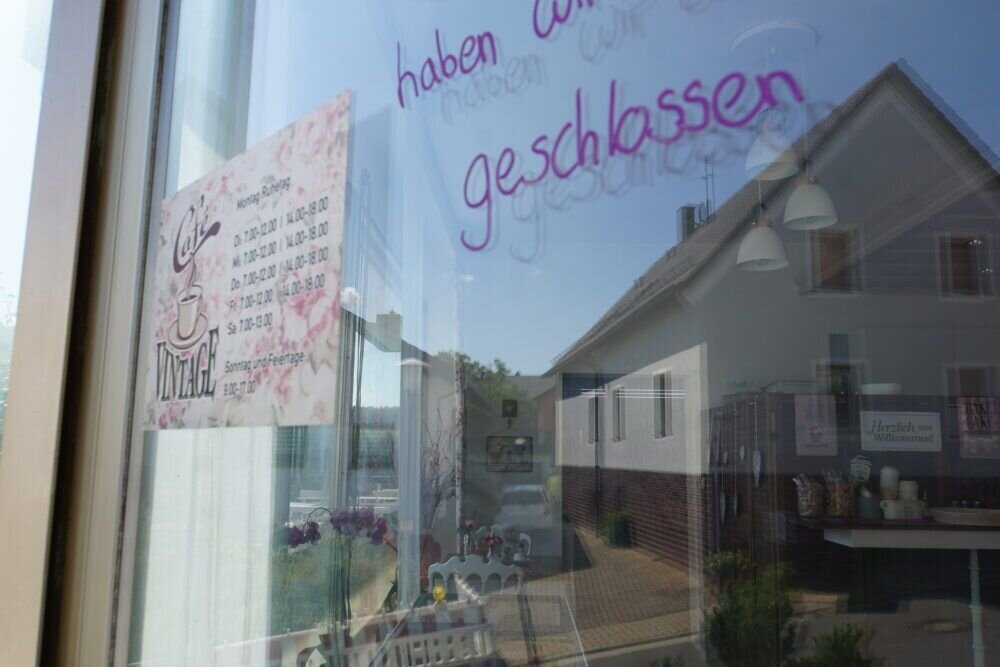 haben wir
geschlossen
Café
VINTAGE
Montag Ruhetag
Di: 7.00-12.00 | 14.00-18.00
Mi: 7.00-12.00 | 14.00-18.00
Do: 7.00-12.00 | 14.00-18.00
Fr: 7.00-12.00 | 14.00-18.00
Sa: 7.00-13.00
Sonntag und Feiertage:
9.00-17.00
Herzlich
Willkommen!